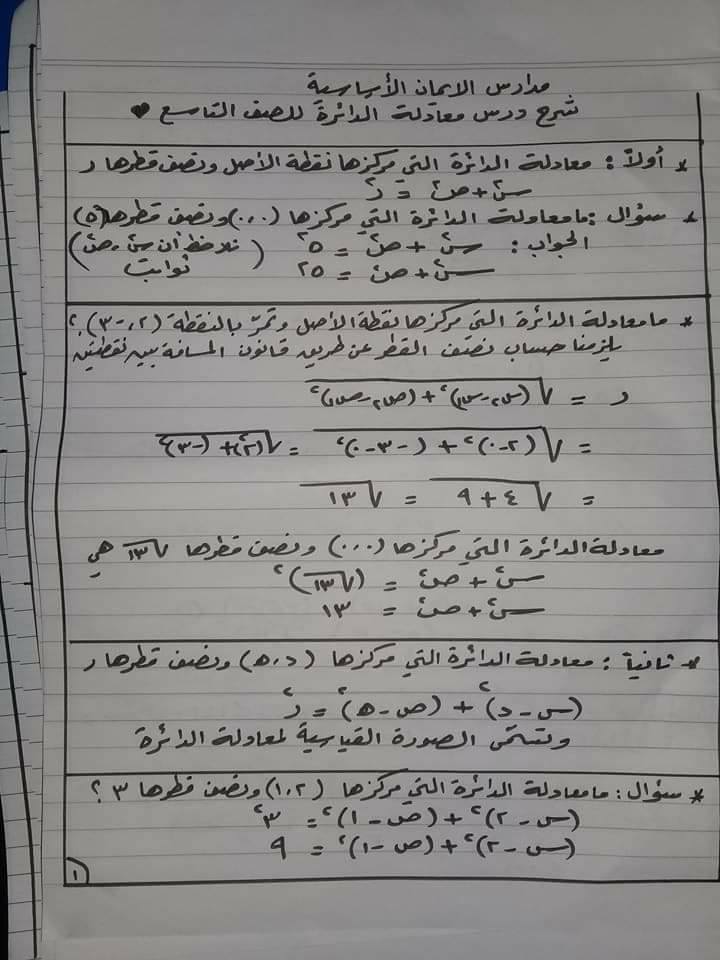 مدارس الإيمان الأساسية
شرح درس معادلة الدائرة للصف التاسع ♥
* أولاً : معادلة الدائرة التي مركزها نقطة الأصل ونصف قطرها ر
س² + ص² = ر²
* سؤال : ما معادلة الدائرة التي مركزها (٠،٠) ونصف قطرها (٥)
الجواب : س² + ص² = ٥² (نلاحظ أن س² ، ص²
س² + ص² = ٢٥ ثوابت)
* ما معادلة الدائرة التي مركزها نقطة الأصل وتمرّ بالنقطة (٢،-٣) ؟
يلزمنا حساب نصف القطر عن طريق قانون المسافة بين نقطتين
ر = √(س٢-س١)² + (ص٢-ص١)²
= √(٢-٠)² + (-٣-٠)² = √(٢)² + (-٣)²
= √٤+٩ = √١٣
معادلة الدائرة التي مركزها (٠،٠) ونصف قطرها √١٣ هي
س² + ص² = (√١٣)²
س² + ص² = ١٣
* ثانياً : معادلة الدائرة التي مركزها (د،ه) ونصف قطرها ر
(س-د)² + (ص-ه)² = ر²
وتسمى الصورة القياسية لمعادلة الدائرة
* سؤال : ما معادلة الدائرة التي مركزها (١،٢) ونصف قطرها ٣ ؟
(س-٢)² + (ص-١)² = ٣²
(س-٢)² + (ص-١)² = ٩
١